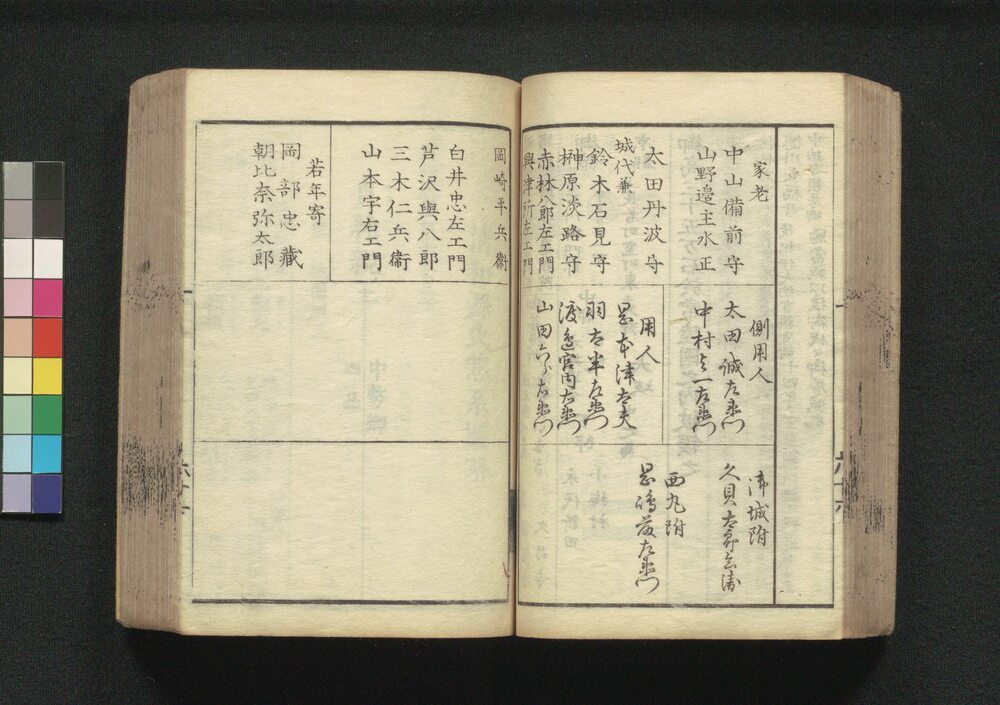 家老
中山備前守
山野邉主水正
太田丹波守
城代兼
鈴木石見守
榊原淡路守
赤林八郎左エ門
興津所左エ門
側用人
太田誠左衛門
中村与一左衛門
用人
岡本津太夫
羽太半左衛門
渡邉宮内左衛門
山田六郎左衛門
御城附
久貝太郎兵衛
西丸附
岡崎平兵衞
白井忠左エ門
芦沢與八郎
三木仁兵衞
山本宇右エ門
若年寄
岡部忠藏
朝比奈弥太郎